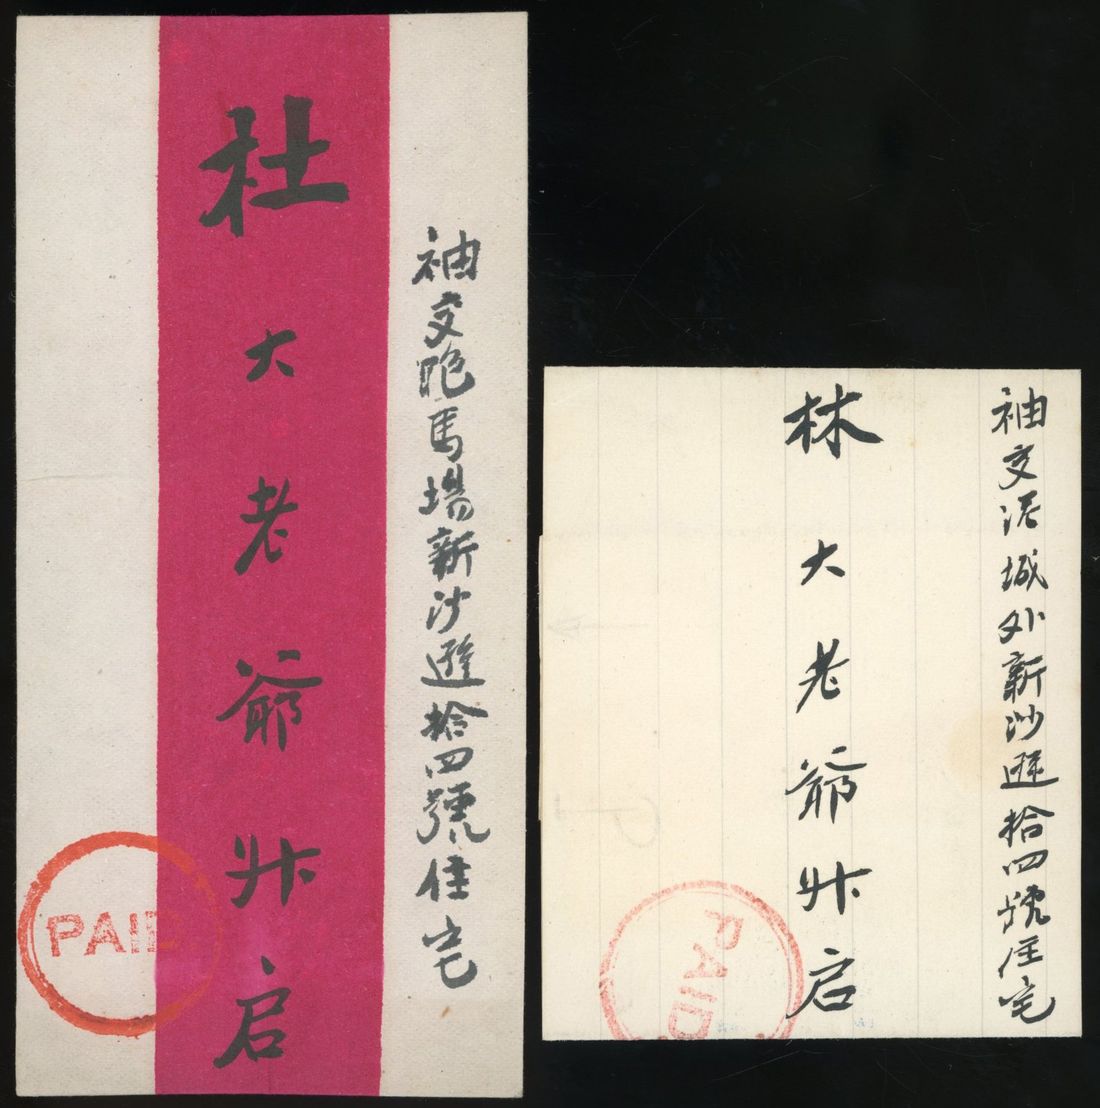 袖交跑馬場新沙遜拾四號住宅
杜大老爺升启
PAID
袖交泥城外新沙遜拾四號住宅
林大老爺升启
PAID